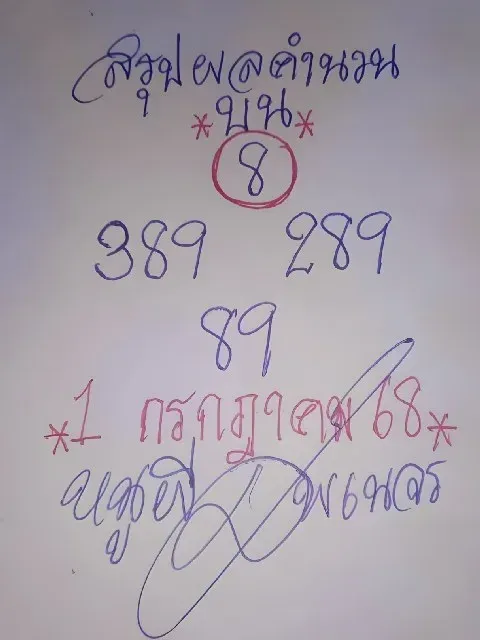 สรุปผลคำนวน
*บน*
8
389 289
89
*1 กรกฎาคม 68*
หนูผี พเนจร